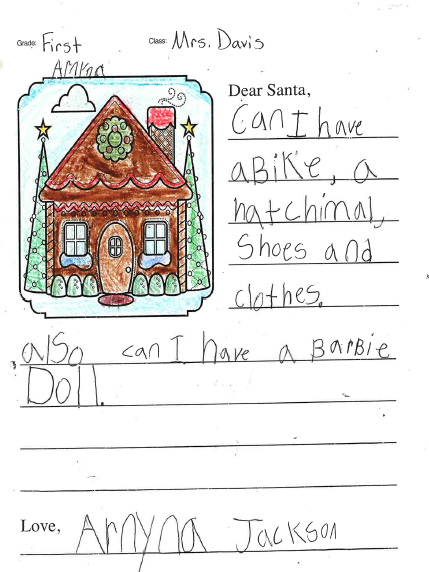 Grade: First Class: Mrs. Davis
Amyna
Dear Santa,
Can I have
a Bike, a
hatchimal,
Shoes and
clothes.
also can I have a Barbie
Doll.
Love, Amyna Jackson